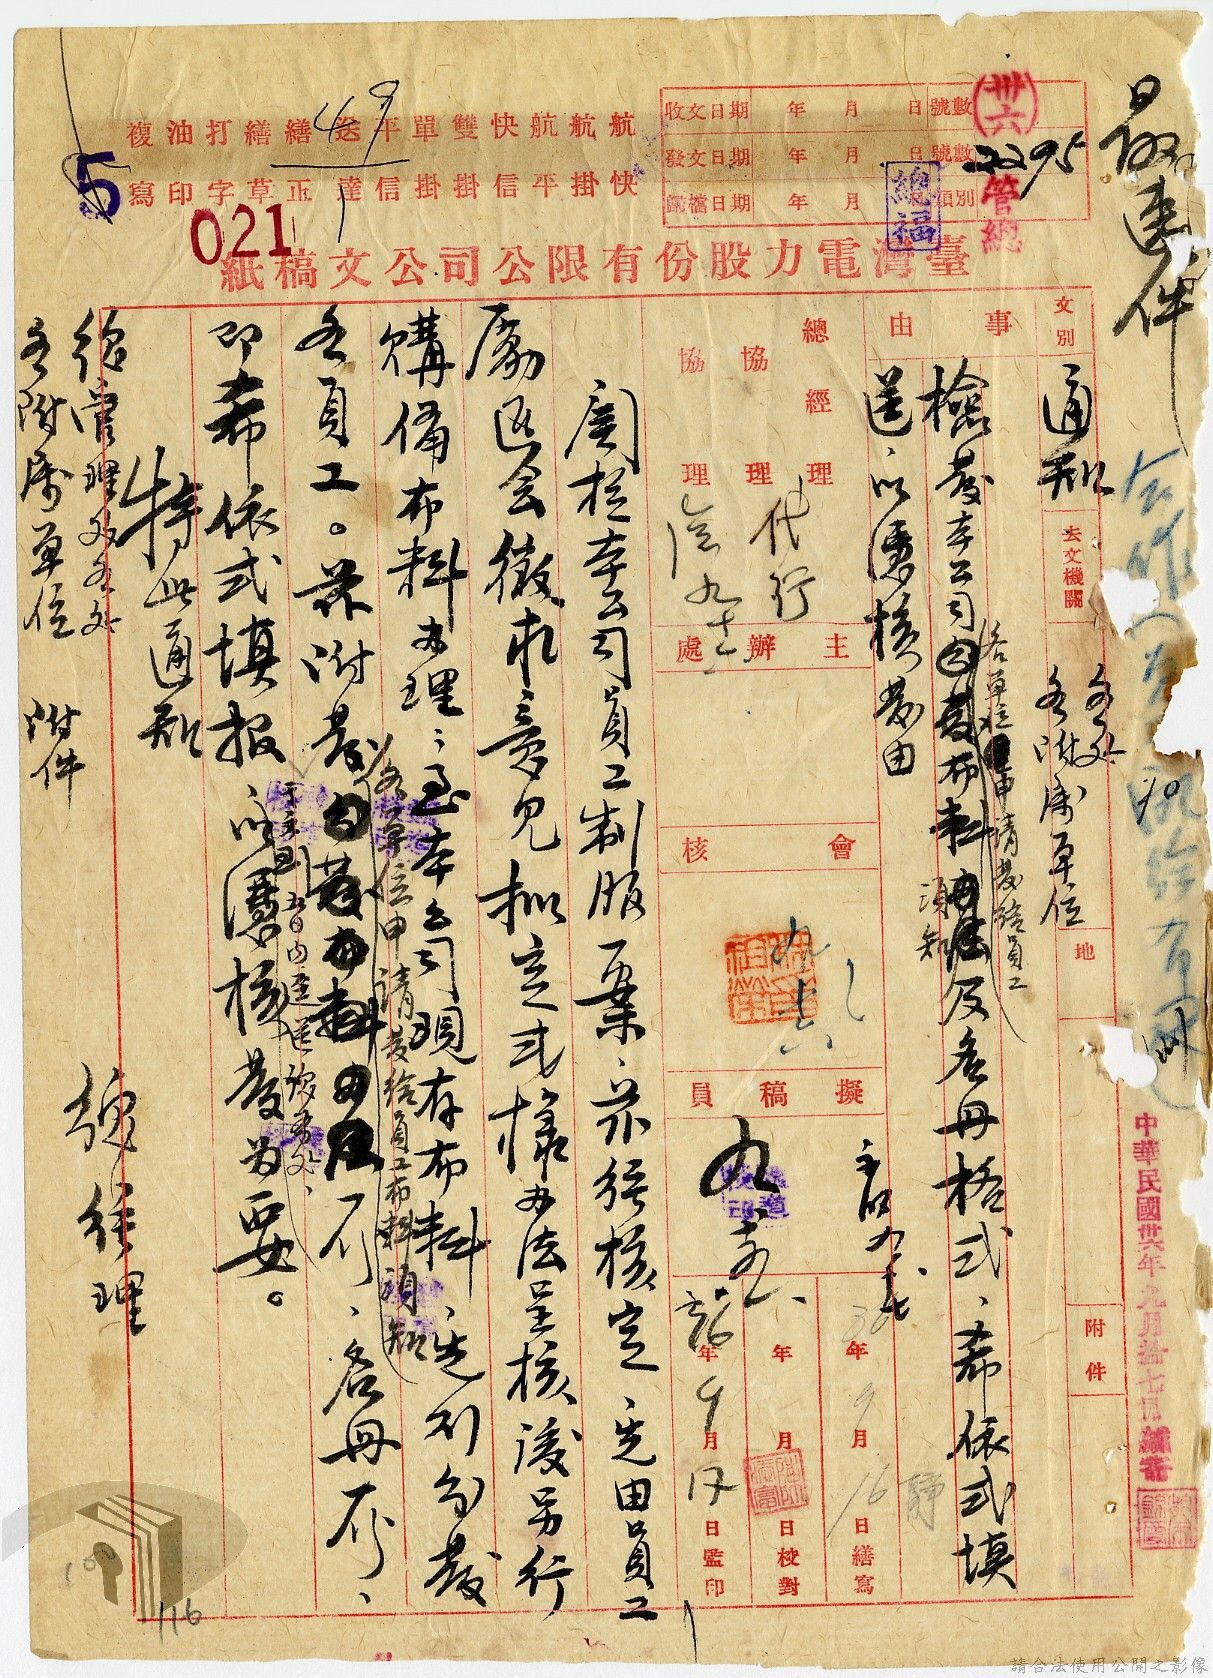 最速件
中華民國卅六年九月拾七日繕寄
(卅六)
管總
2295
收文日期 年 月 日 號數
發文日期 年 月 日 號數
歸檔日期 年 月 日 類別
總福
航航航快雙單平送繕繕打油複
快掛平信掛掛信達正草字印寫
49
5
021
臺灣電力股份有限公司公文稿紙
文別
通知
去文機關
各處
各附屬單位
地
附件
事由
檢發本公司各單位申請發給員工布料須知及名冊格式、希依式填
送、以憑核發由
總經理
協理
協理
代行
主辦處
會核
擬稿員
36年9月16日繕寫
年 月 日校對
36年9月17日監印
關於本公司員工制服一案、亦經核定、先由員工
勵進會徵求意見擬定式樣辦法呈核後另行
購備布料辦理、至本公司現存布料、先行分發
各員工。茲附發各單位申請發給員工布料須知一份、名冊一份、
即希依式填報于文到五日內逕送總務處、以憑核發為要。
特此通知
總管理處各處
各附屬單位 附件
總經理
100
116
請合法使用公開之影像